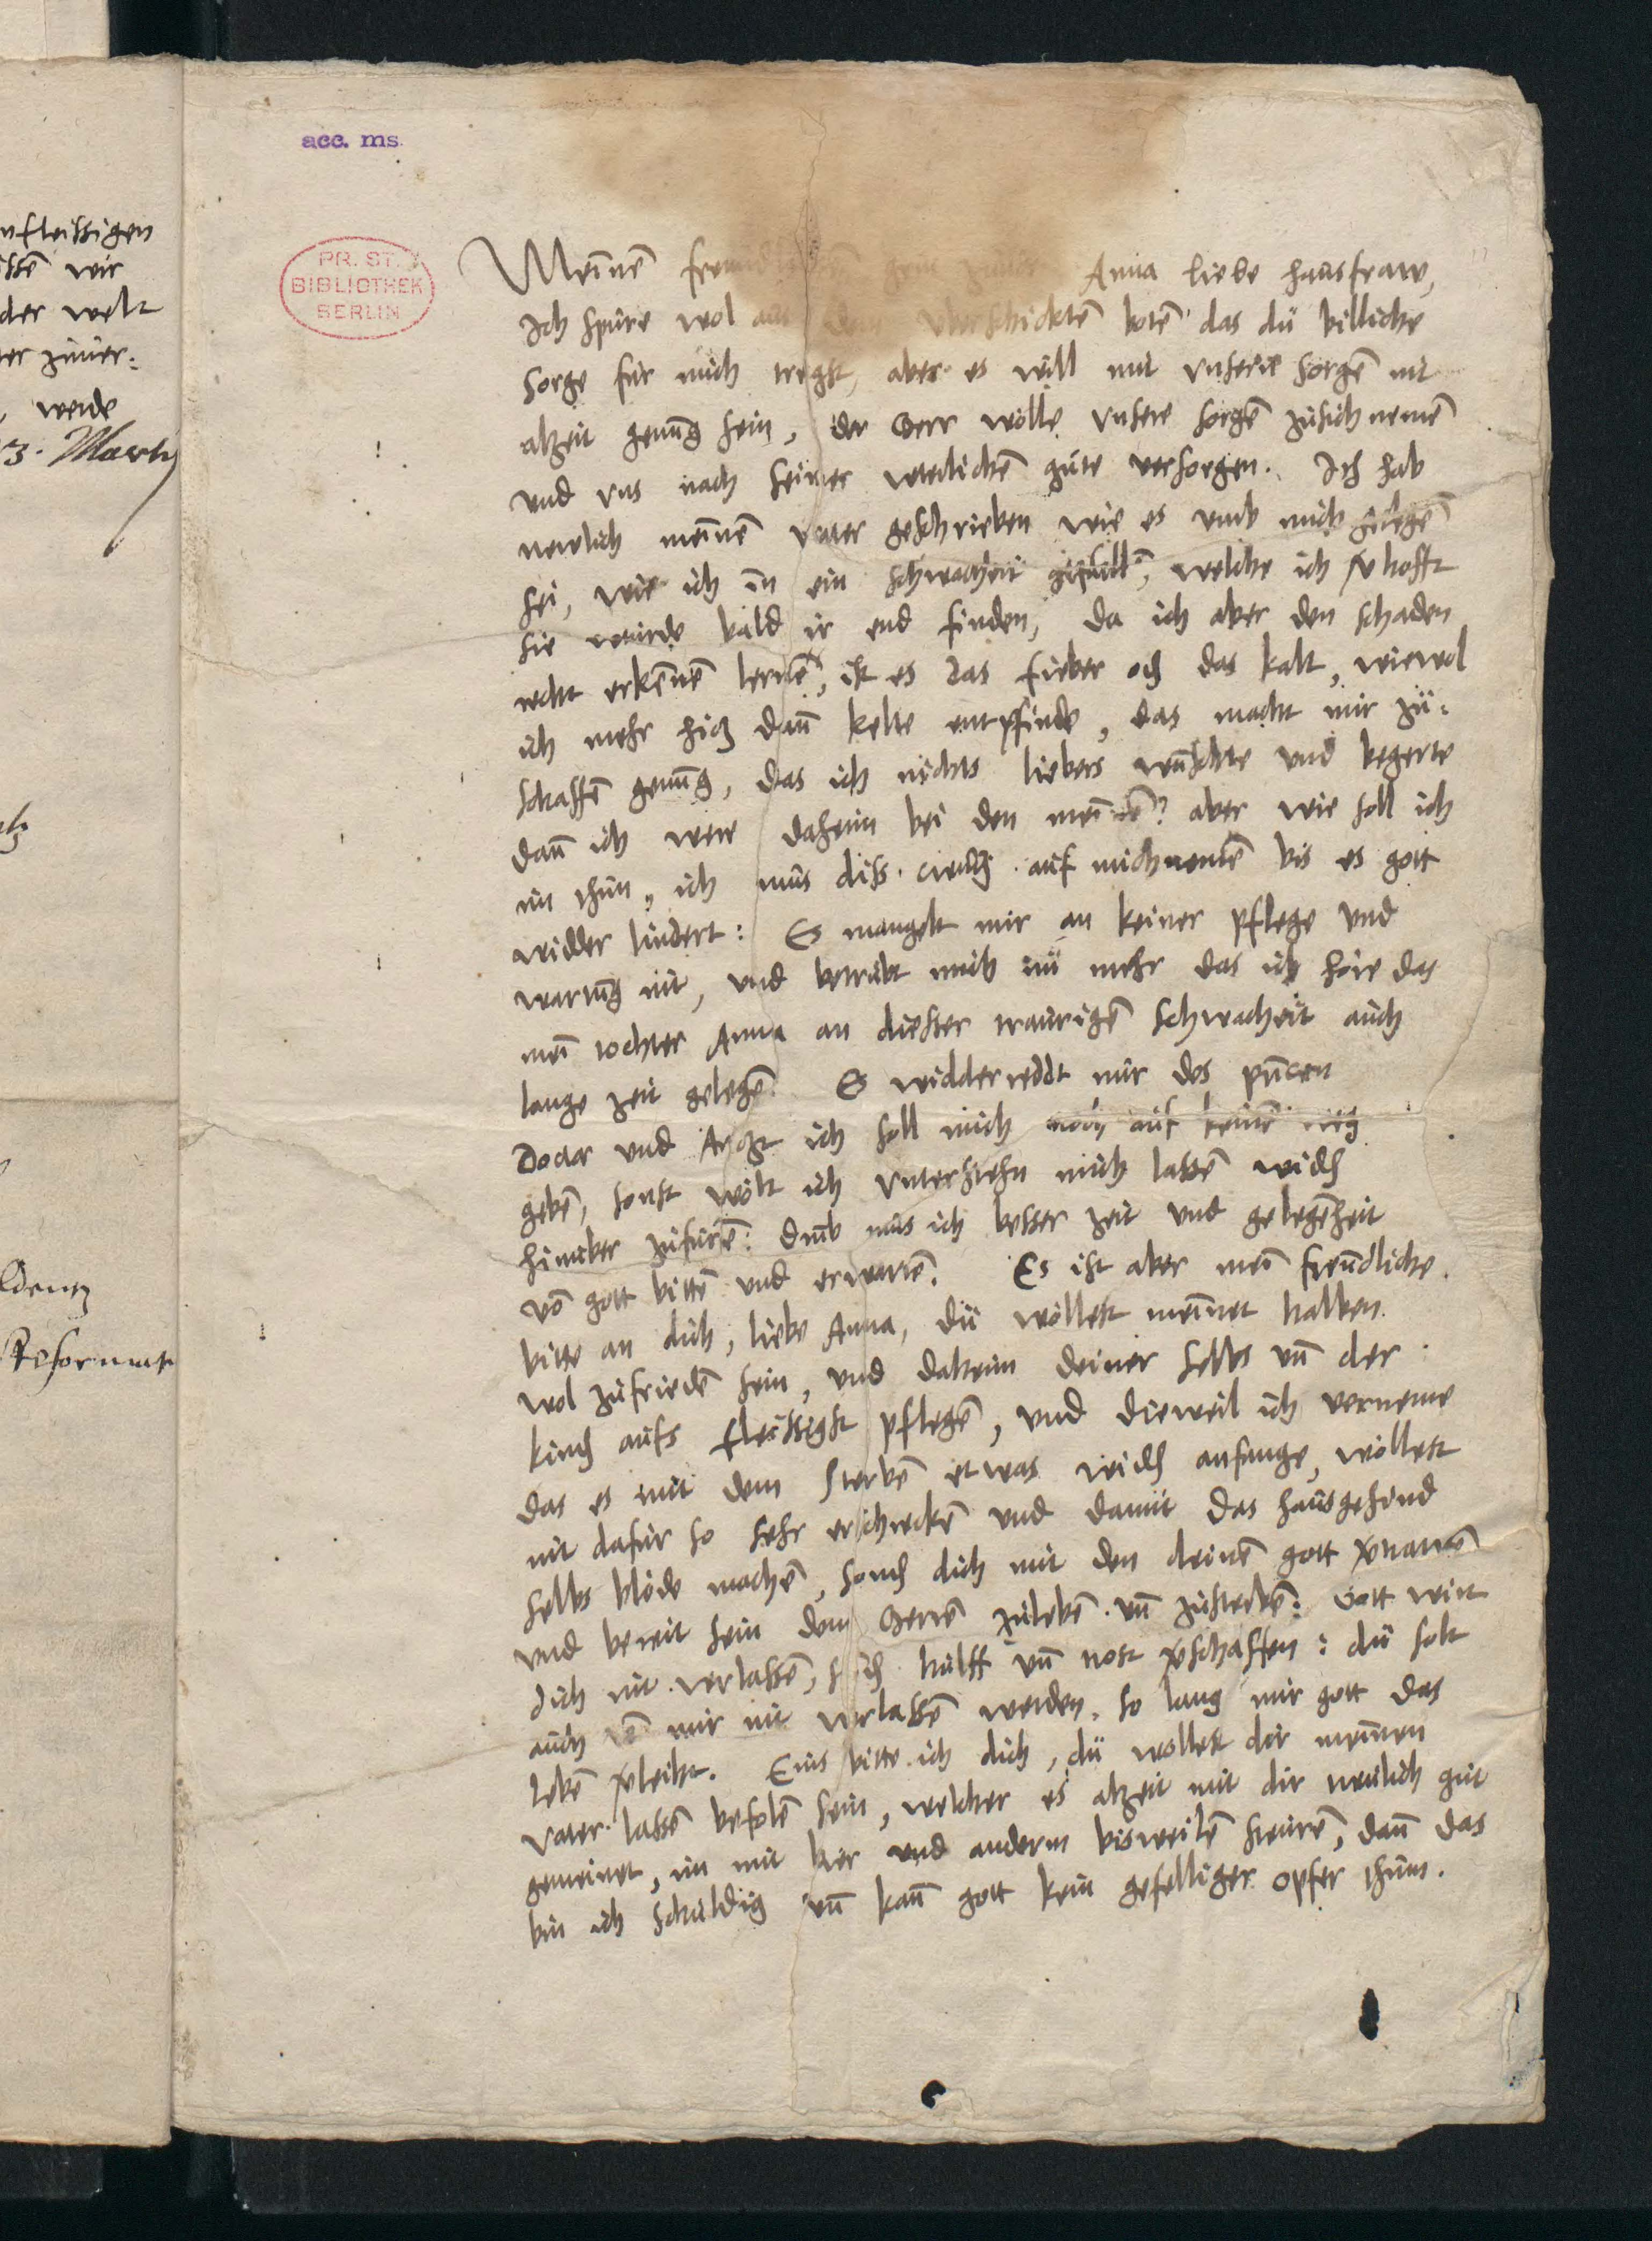 acc. ms.
PR. ST.
BIBLIOTHEK
BERLIN
nfleissigen
ssen̄ wir
der welt
ter zuuer:
werde
3. Martij
Reformat
Meinen̄ Anna liebe hausfraw,
Ich spure wol aus dem vberschickten̄ boten̄ das du billiche
sorge fur mich tregst, aber es will mit vnsern sorgen̄ nit
alzeit genug sein, der Herr wölle vnsere sorgen̄ zusich nemen̄
und vns nach seiner veterlichen̄ gute versorgen. Ich hab
newlich meinen̄ vater geschrieben wie es vmb mich gelegen̄
sei, wie ich in ein schwacheit gefalln̄, welche ich v̄hofft
sie wurde bald ir end finden, da ich aber den schaden
recht erkennen̄ lernen̄, ist es das fieber och das kalt, wiewol
ich mehr hitz dan̄ kelte entpfinde, das macht mir zu:
schaffen̄ genug, das ich nichts liebers wunschte und begerte
dan̄ ich were daheim bei den meinen̄? aber wie soll ich
im thun, ich mus diss creutz auf mich nemen̄ bis es gott
widder lindert: Es mangelt mir an keiner pflege und
wartung nit, und betrubt mich nu mehr das ich höre das
mein̄ tochter Anna an diesser traurigen̄ schwacheit auch
lange zeit gelegen̄. Es widderreddt mir des printzen
Doctor und Artzt ich soll mich noch auf keinen̄ weg
geben̄, sonst wölt ich vnterstehn mich lassen̄ widd
hinuber zufuren̄: drub mus ich besser zeit und gelegenheit
von̄ gott bitten̄ und erwarten̄. Es ist aber mein̄ freundliche
bitte an dich, liebe Anna, du wöllest meinet halben
wol zufrieden̄ sein, und daheim deiner selbs un̄ der
kind aufs fleissigst pflegen̄, und dieweil ich verneme
das es mit dem sterben̄ etwas widd anfange, wöllest
nit dafur so sehr erschrecken̄ und damit das hausgesind
selbs blöde machen̄, sond dich mit den deinen̄ gott v̄trawen̄
und bereit sein dem Herren̄ zuleben̄ un̄ zusterben̄: Gott wirt
dich nit verlassen̄, sond hulff un̄ rost v̄schaffen: du solt
auch von̄ mir nit verlassen̄ werden, so lang mir gott das
leben̄ v̄leiht. Eins bitte ich dich, du wollest dir meinen
vater lassen̄ befolen̄ sein, welcher es alzeit mit dir treulich gut
gemeinet, im mit bier und anderm bisweilen̄ steuren̄, dan̄ das
bin ich schuldig un̄ kan̄ gott kein gefelliger opfer thun.